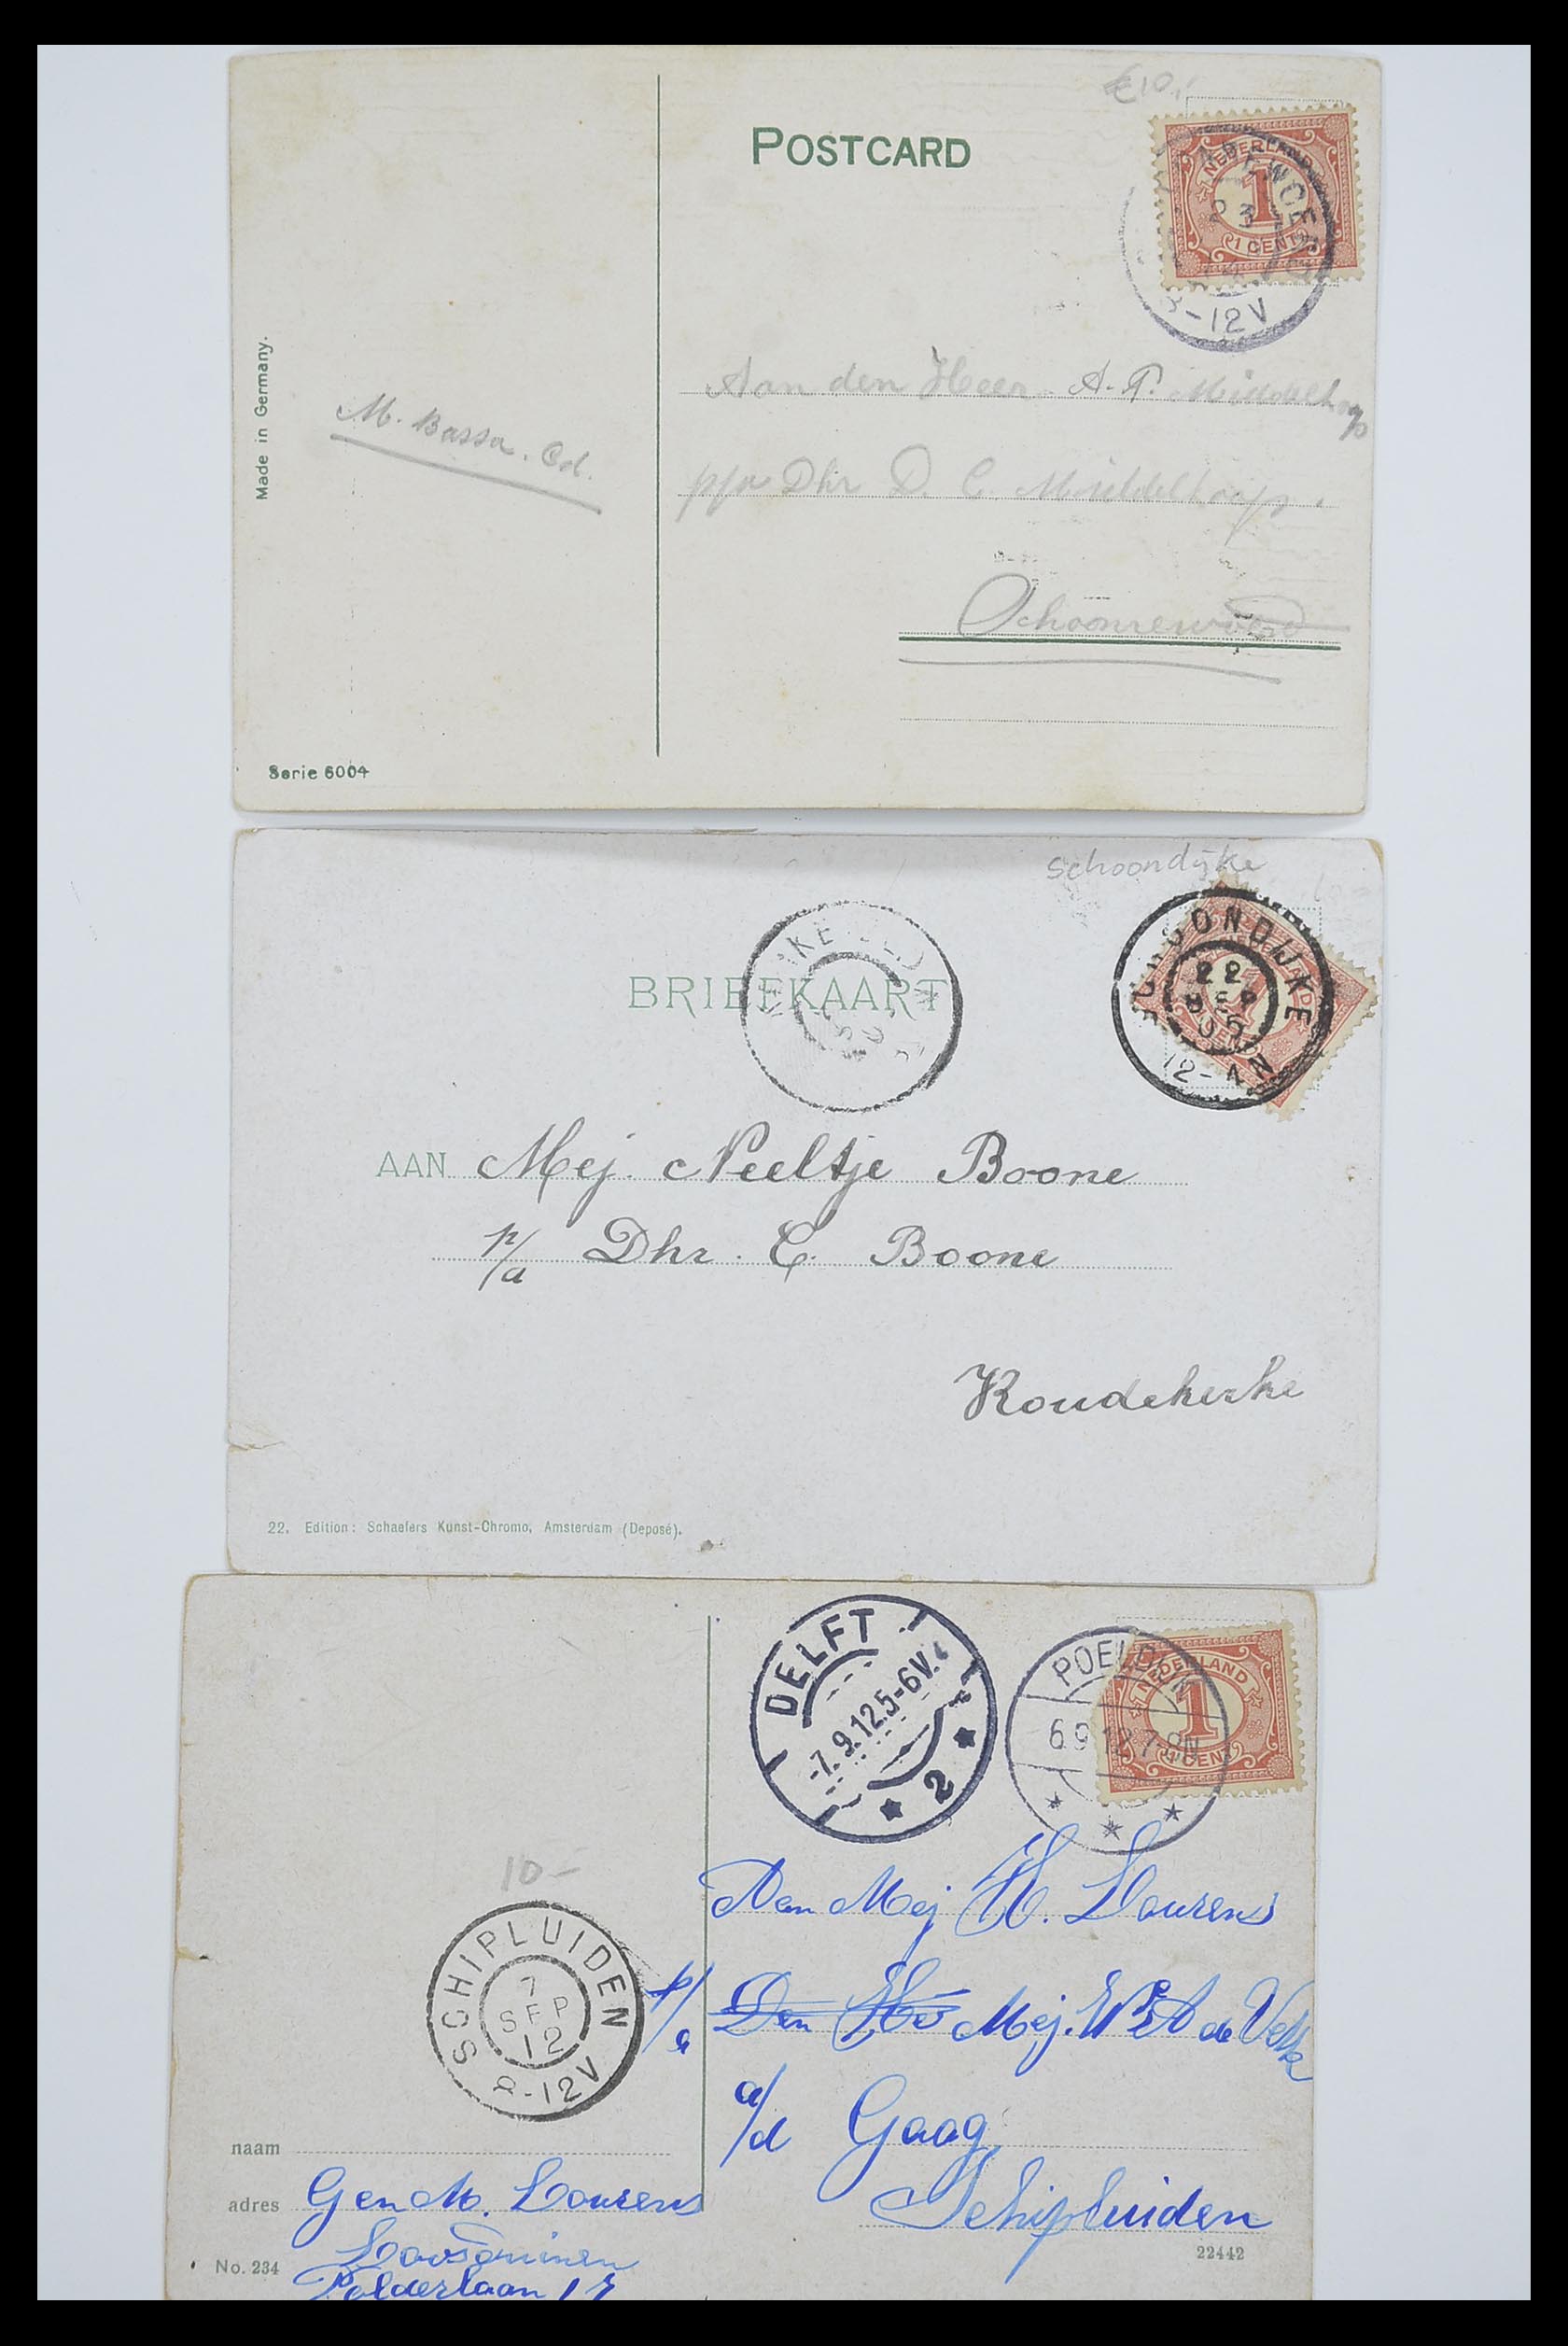 €10,-
POSTCARD
NEDERLAND
1
1 CENT
3
8-12V
Aan den Heer A. P. Middelkoop
p/a Dhr D. C. Middelkoop.
Schoonrewoerd
M. Bassa. Cd.
Made in Germany.
Serie 6004
schoondijke
SCHOONDIJKE
22
SEP
05
12-1N
BRIEFKAART
AAN Mej. Neeltje Boone
p/a Dhr. C. Boone
Koudekerke
22. Edition: Schaefers Kunst-Chromo, Amsterdam (Deposé).
DELFT
-7.9.12.5-6V.
2
POELDIJK
6.9.12.7-8N
NEDERLAND
1
1 CENT
10-
SCHIPLUIDEN
7
SEP
12
8-12V
Aan Mej H. Lourens
p/a Den Heer Mej. de
a/d Gaag
Schipluiden
naam
adres G en M. Lourens
Loosduinen
Polderlaan 17
No. 234
22442